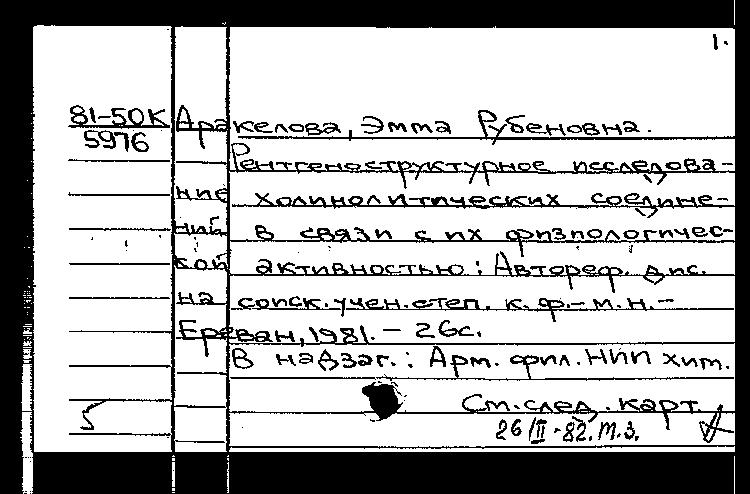 1.
81-50К
5976
Аракелова, Эмма Рубеновна.
Рентгеноструктурное исследова-
ние холинолитических соедине-
ний в связи с их физиологичес-
кой активностью: Автореф. дис.
на соиск. учен. степ. к. ф.-м. н.-
Ереван, 1981. - 26с.
В надзаг.: Арм. фил. НИИ хим.
См. след. карт.
5
26/III-82. т. 3.